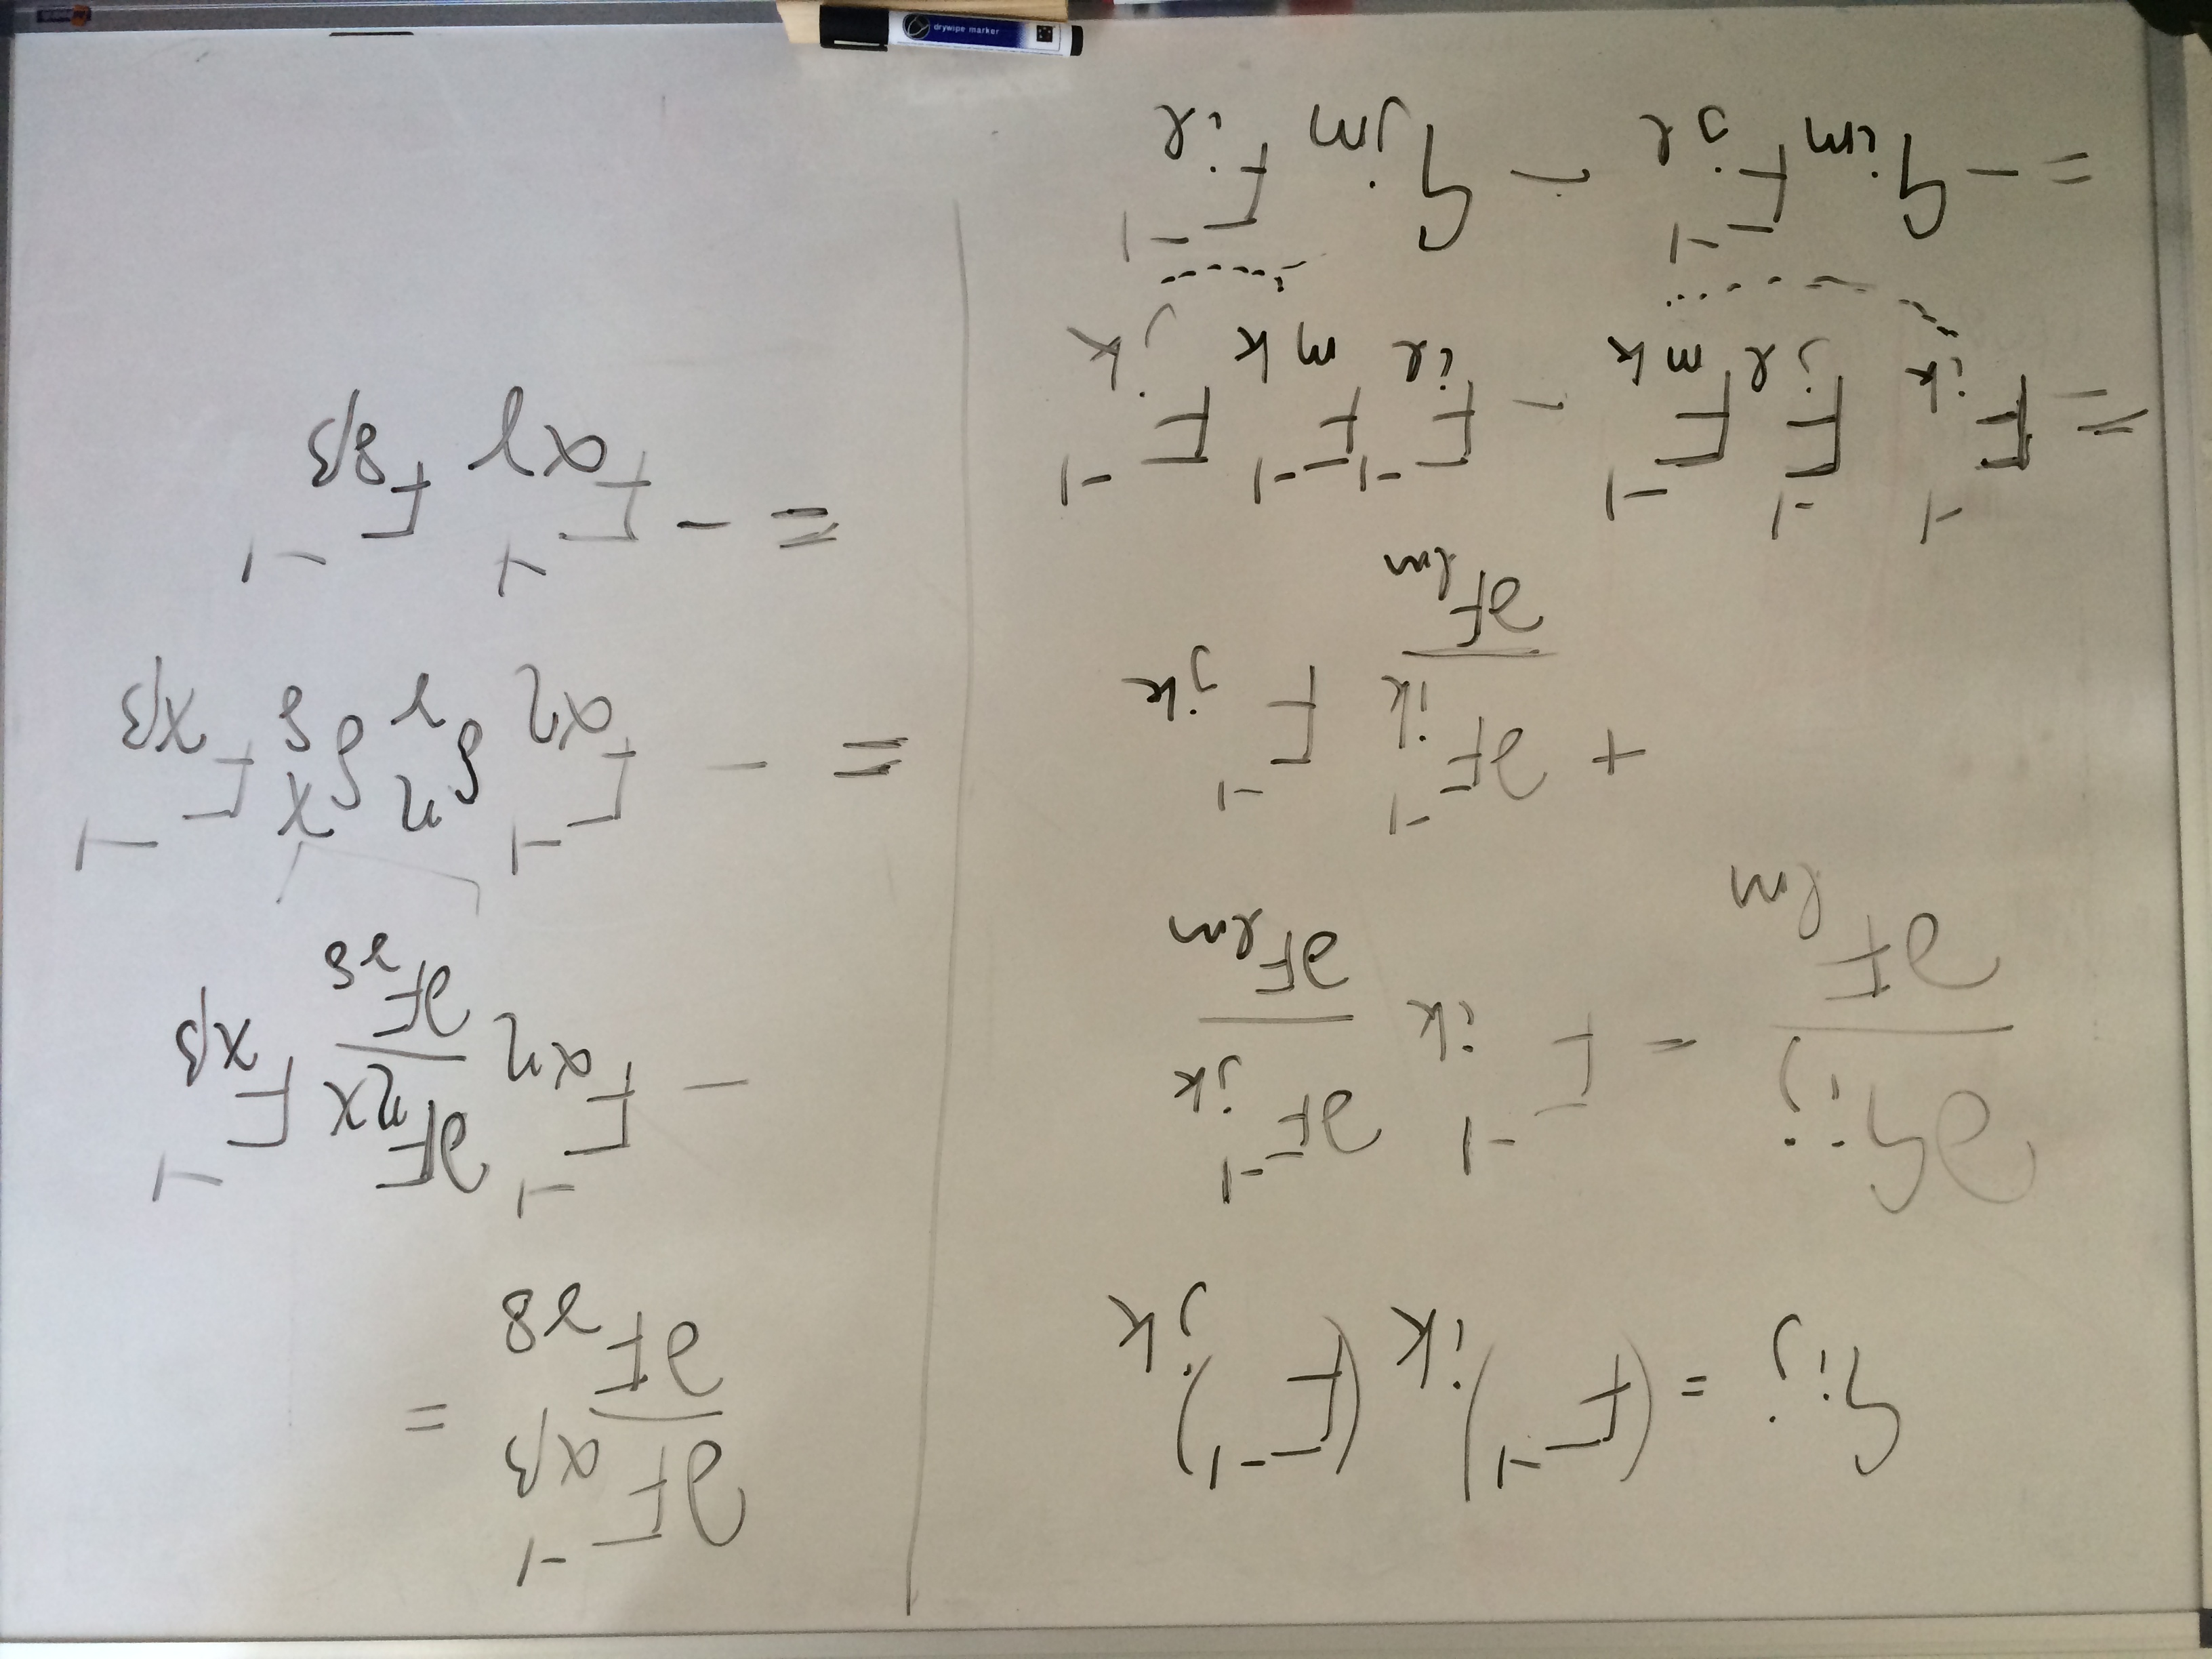 G_{ij} = (F^{-1})_{ik} (F^{-1})_{jk}
∂G_{ij}/∂F_{lm} = F^{-1}_{ik} ∂F^{-1}_{jk}/∂F_{lm}
+ ∂F^{-1}_{ik}/∂F_{lm} F^{-1}_{jk}
= F^{-1}_{ik} F^{-1}_{jl} F^{-1}_{mk} - F^{-1}_{il} F^{-1}_{mk} F^{-1}_{jk}
= - G_{im} F^{-1}_{jl} - G_{jm} F^{-1}_{il}
∂F^{-1}_{αβ}/∂F_{γδ} =
- F^{-1}_{αη} ∂F_{ηχ}/∂F_{γδ} F^{-1}_{χβ}
= - F^{-1}_{αη} δ^{η}_{γ} δ^{χ}_{δ} F^{-1}_{χβ}
= - F^{-1}_{αγ} F^{-1}_{δβ}
drywipe marker